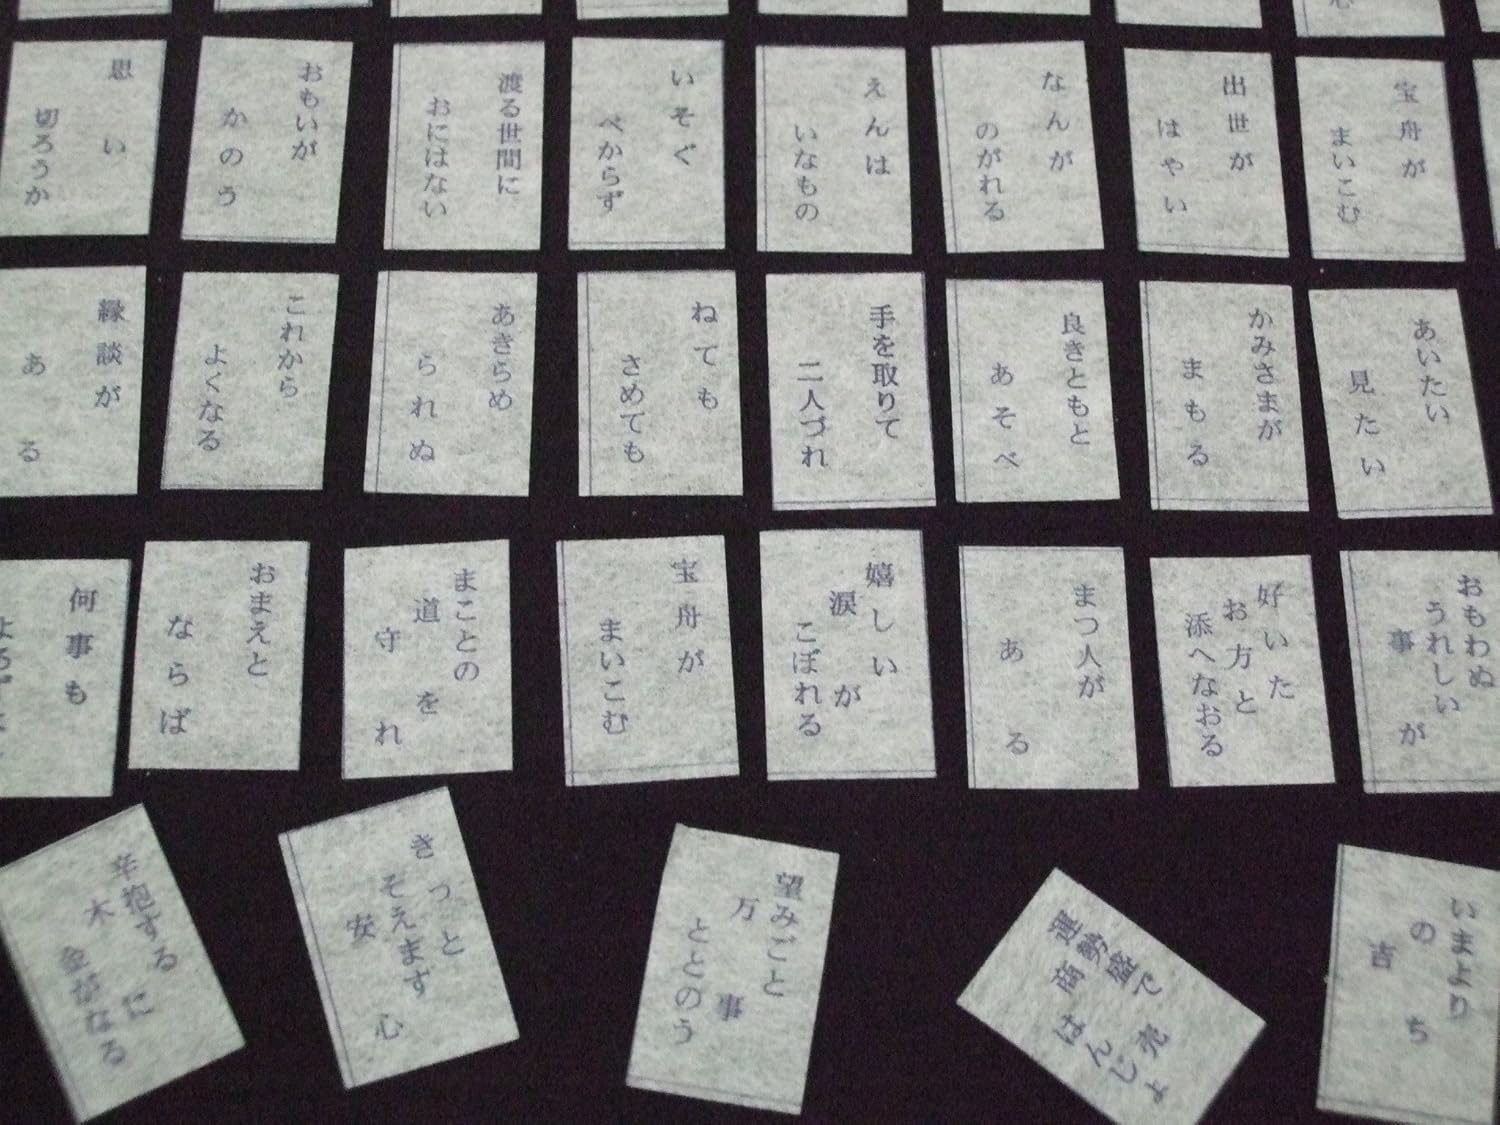 心
思い
切ろうか
おもいが
かのう
渡る世間に
おにはない
いそぐ
べからず
えんは
いなもの
なんが
のがれる
出世が
はやい
宝舟が
まいこむ
縁談が
ある
これから
よくなる
あきらめ
られぬ
ねても
さめても
手を取りて
二人づれ
良きともと
あそべ
かみさまが
まもる
あいたい
見たい
何事も
おまえと
ならば
まことの
道を
守れ
宝舟が
まいこむ
嬉しい
涙が
こぼれる
まつ人が
ある
好いた
お方と
添へなおる
おもわぬ
うれしい
事が
辛抱する
木に
金がなる
きっと
そえまず
安心
望みごと
万事
ととのう
運勢盛で
商売
はんじよ
いまより
のち
吉